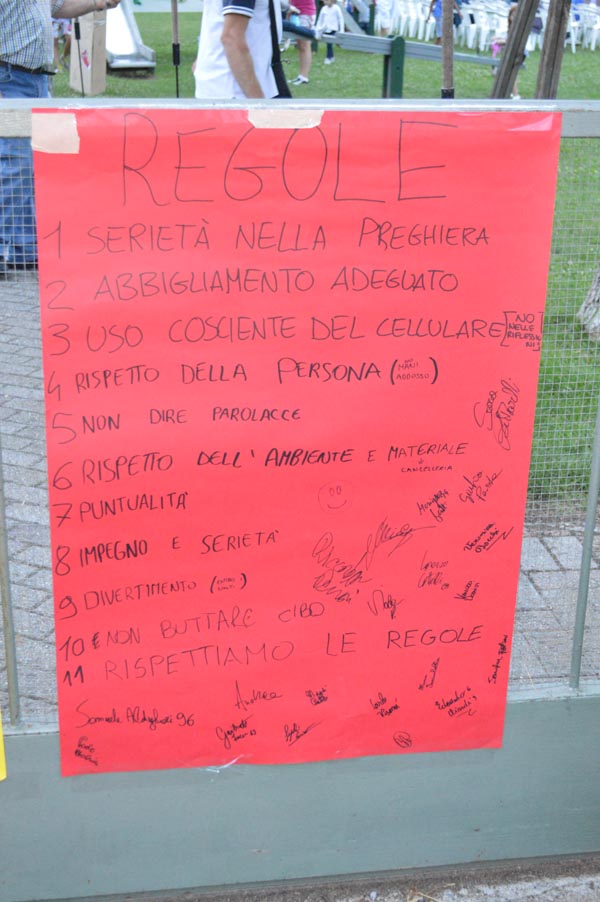 REGOLE
1 SERIETÀ NELLA PREGHIERA
2 ABBIGLIAMENTO ADEGUATO
3 USO COSCIENTE DEL CELLULARE [NO NELLE RIFLESSIONI]
4 RISPETTO DELLA PERSONA (NO MANI ADDOSSO)
5 NON DIRE PAROLACCE
6 RISPETTO DELL'AMBIENTE E MATERIALE
CANCELLERIA
7 PUNTUALITÀ
8 IMPEGNO E SERIETÀ
9 DIVERTIMENTO (ENTRO LIMITI)
10 E NON BUTTARE CIBO
11 RISPETTIAMO LE REGOLE
Andrea
Samuele 96